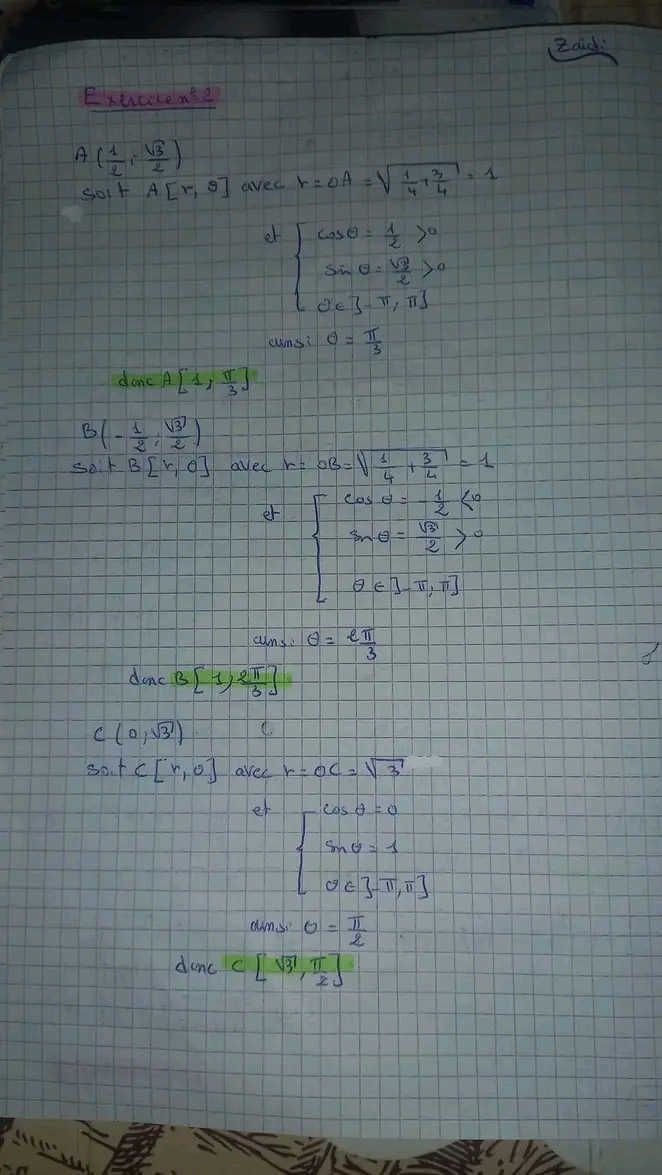 Zaidi
Exercice n°2
A(1/2, √3/2)
soit A[r, θ] avec r = OA = √(1/4 + 3/4) = 1
et { cos θ = 1/2 > 0
sin θ = √3/2 > 0
θ ∈ ]-π, π]
ainsi θ = π/3
donc A[1, π/3]
B(-1/2, √3/2)
soit B[r, θ] avec r = OB = √(1/4 + 3/4) = 1
et { cos θ = -1/2 < 0
sin θ = √3/2 > 0
θ ∈ ]-π, π]
ainsi θ = 2π/3
donc B[1, 2π/3]
C(0, √3)
soit C[r, θ] avec r = OC = √3
et { cos θ = 0
sin θ = 1
θ ∈ ]-π, π]
ainsi θ = π/2
donc C[√3, π/2]